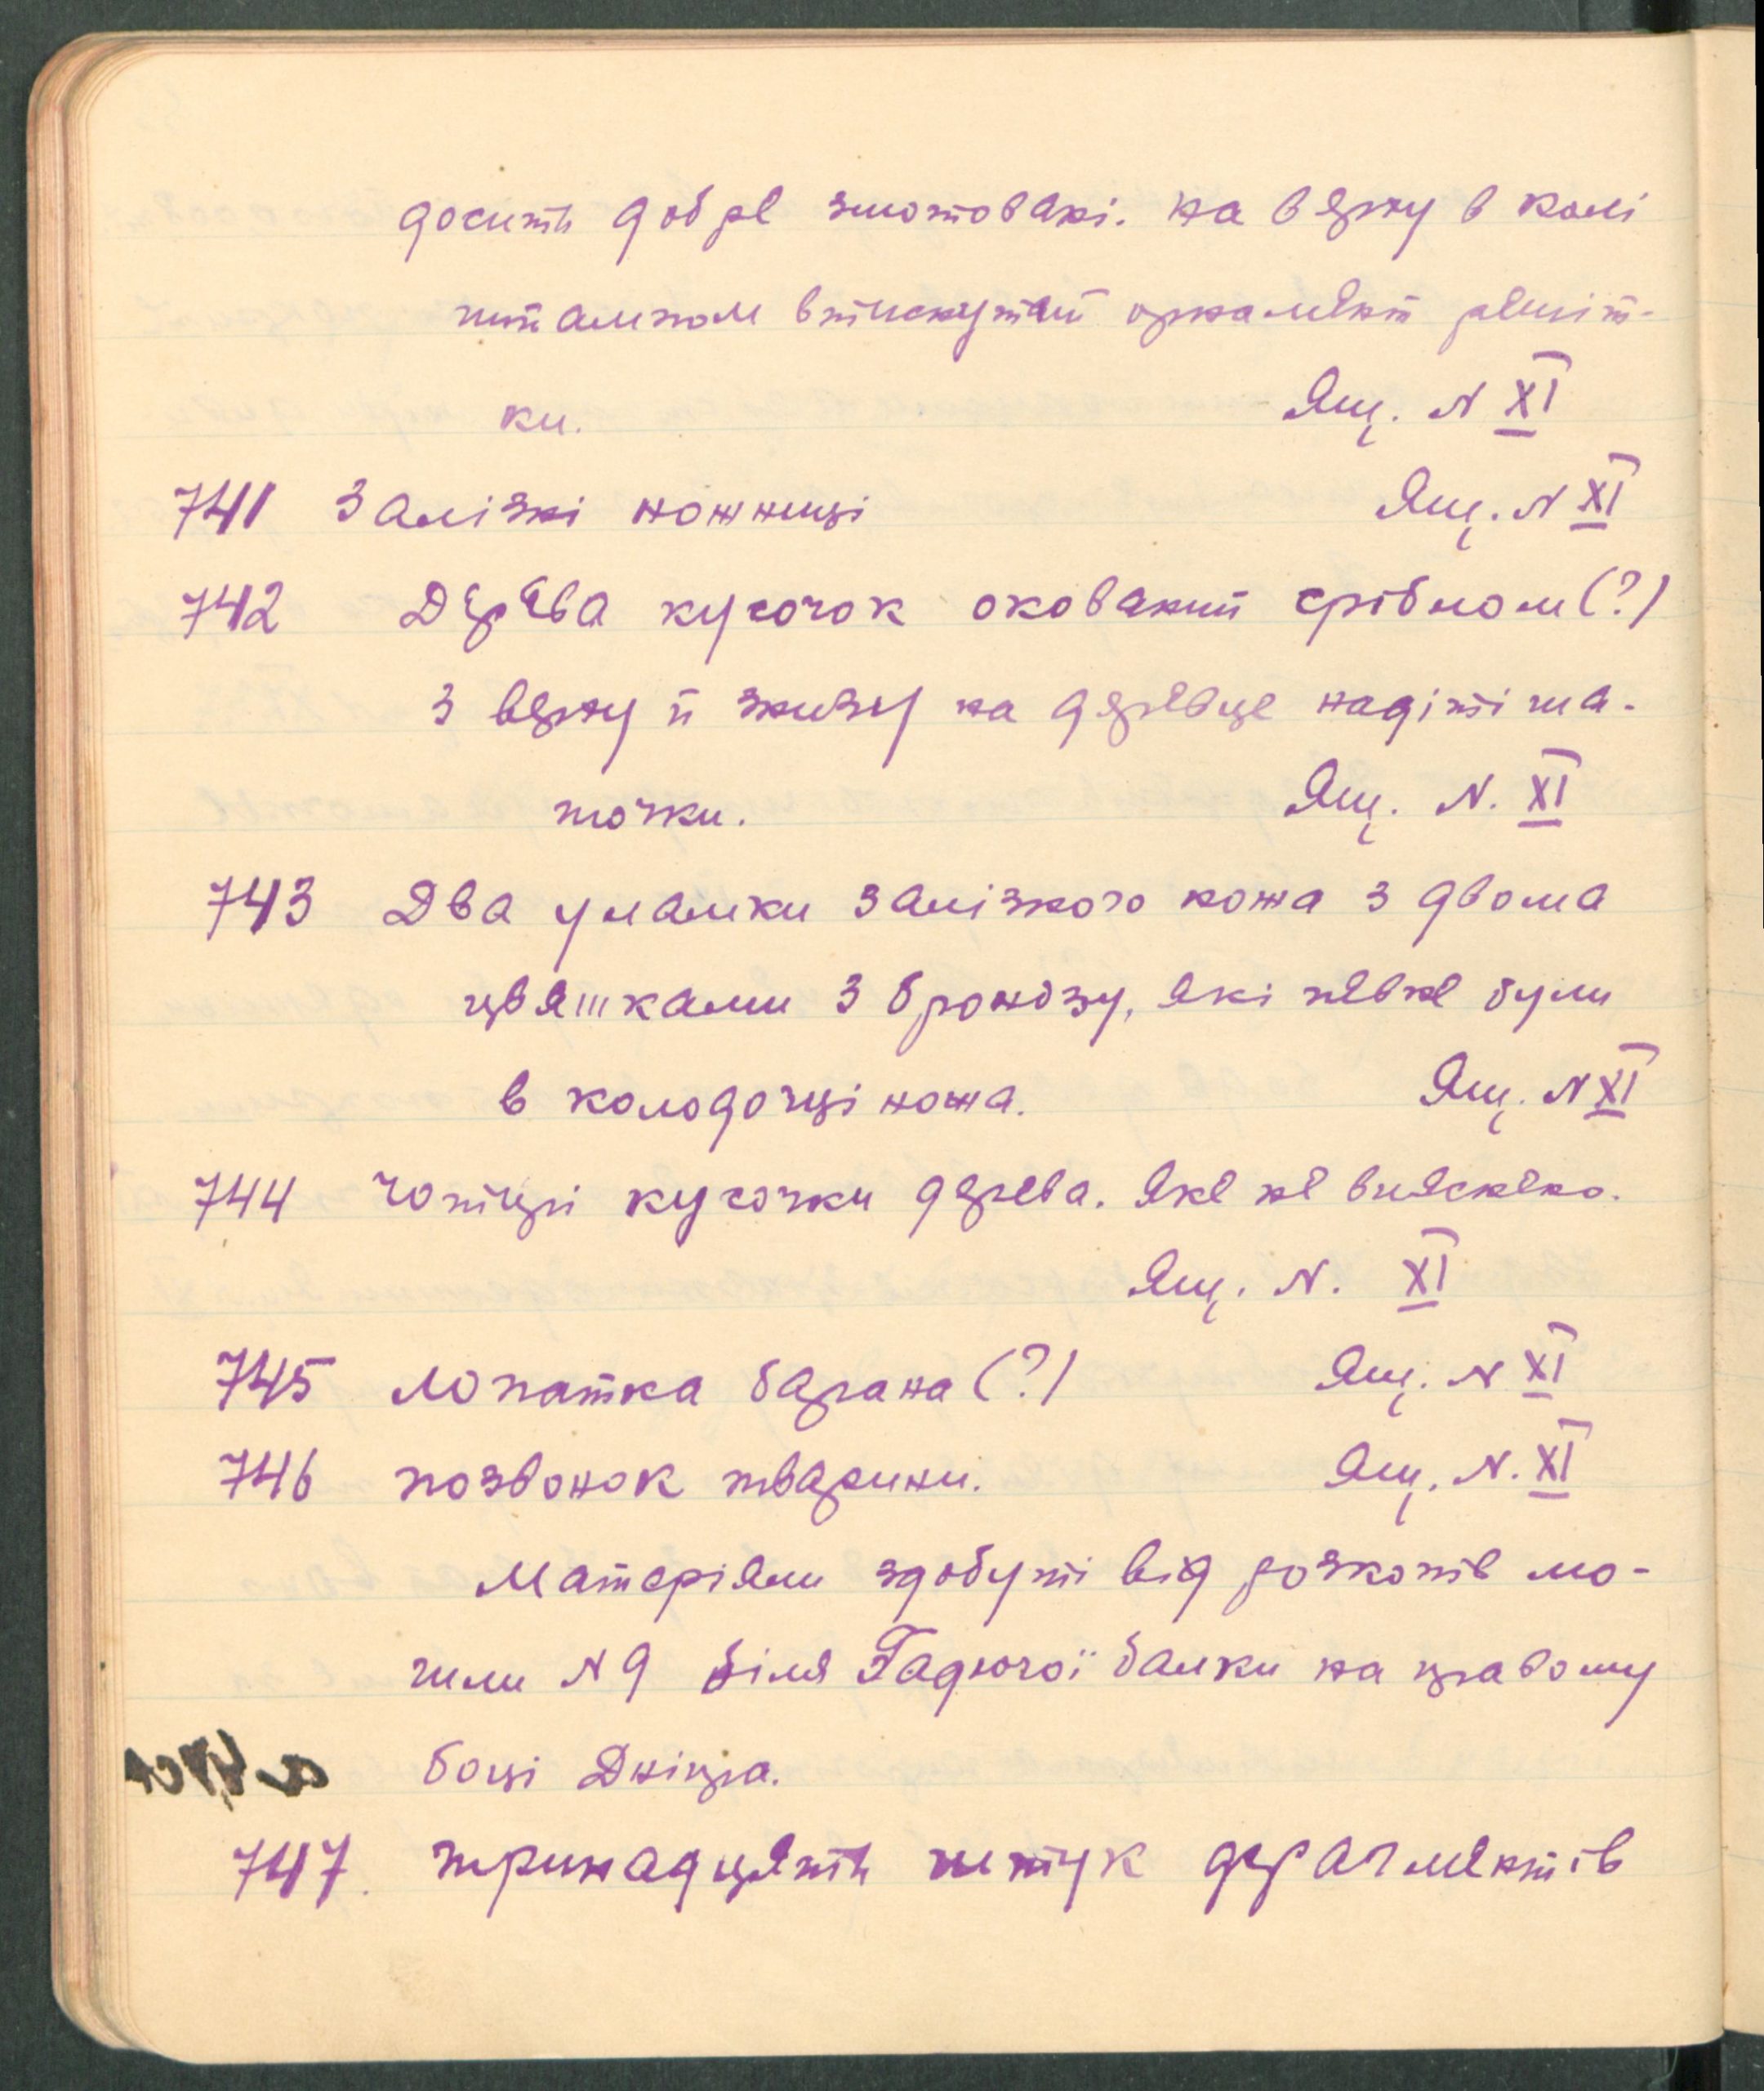 досить добре змотовані. на верху в колі
штампом втиснутий орнамент решіт-
ки. Ящ. N XI
741 Залізні ножниці Ящ. N XI
742 Дерева кусочок окований срібном (?)
з верху й знизу на деревце надіті ша-
точки. Ящ. N. XI
743 Два уламки залізного ножа з двома
цвяшками з бронзу, які певне були
в колодочці ножа. Ящ. N XI
744 Чотирі кусочки дерева. Яке не вияснено.
Ящ. N. XI
745 Лопатка барана (?) Ящ. N XI
746 позвонок тварини. Ящ. N. XI
Матеріяли здобуті від розкопів мо-
гили N 9 біля Гадючої балки на правому
боці Дніпра.
747. тринадцять штук фрагментів